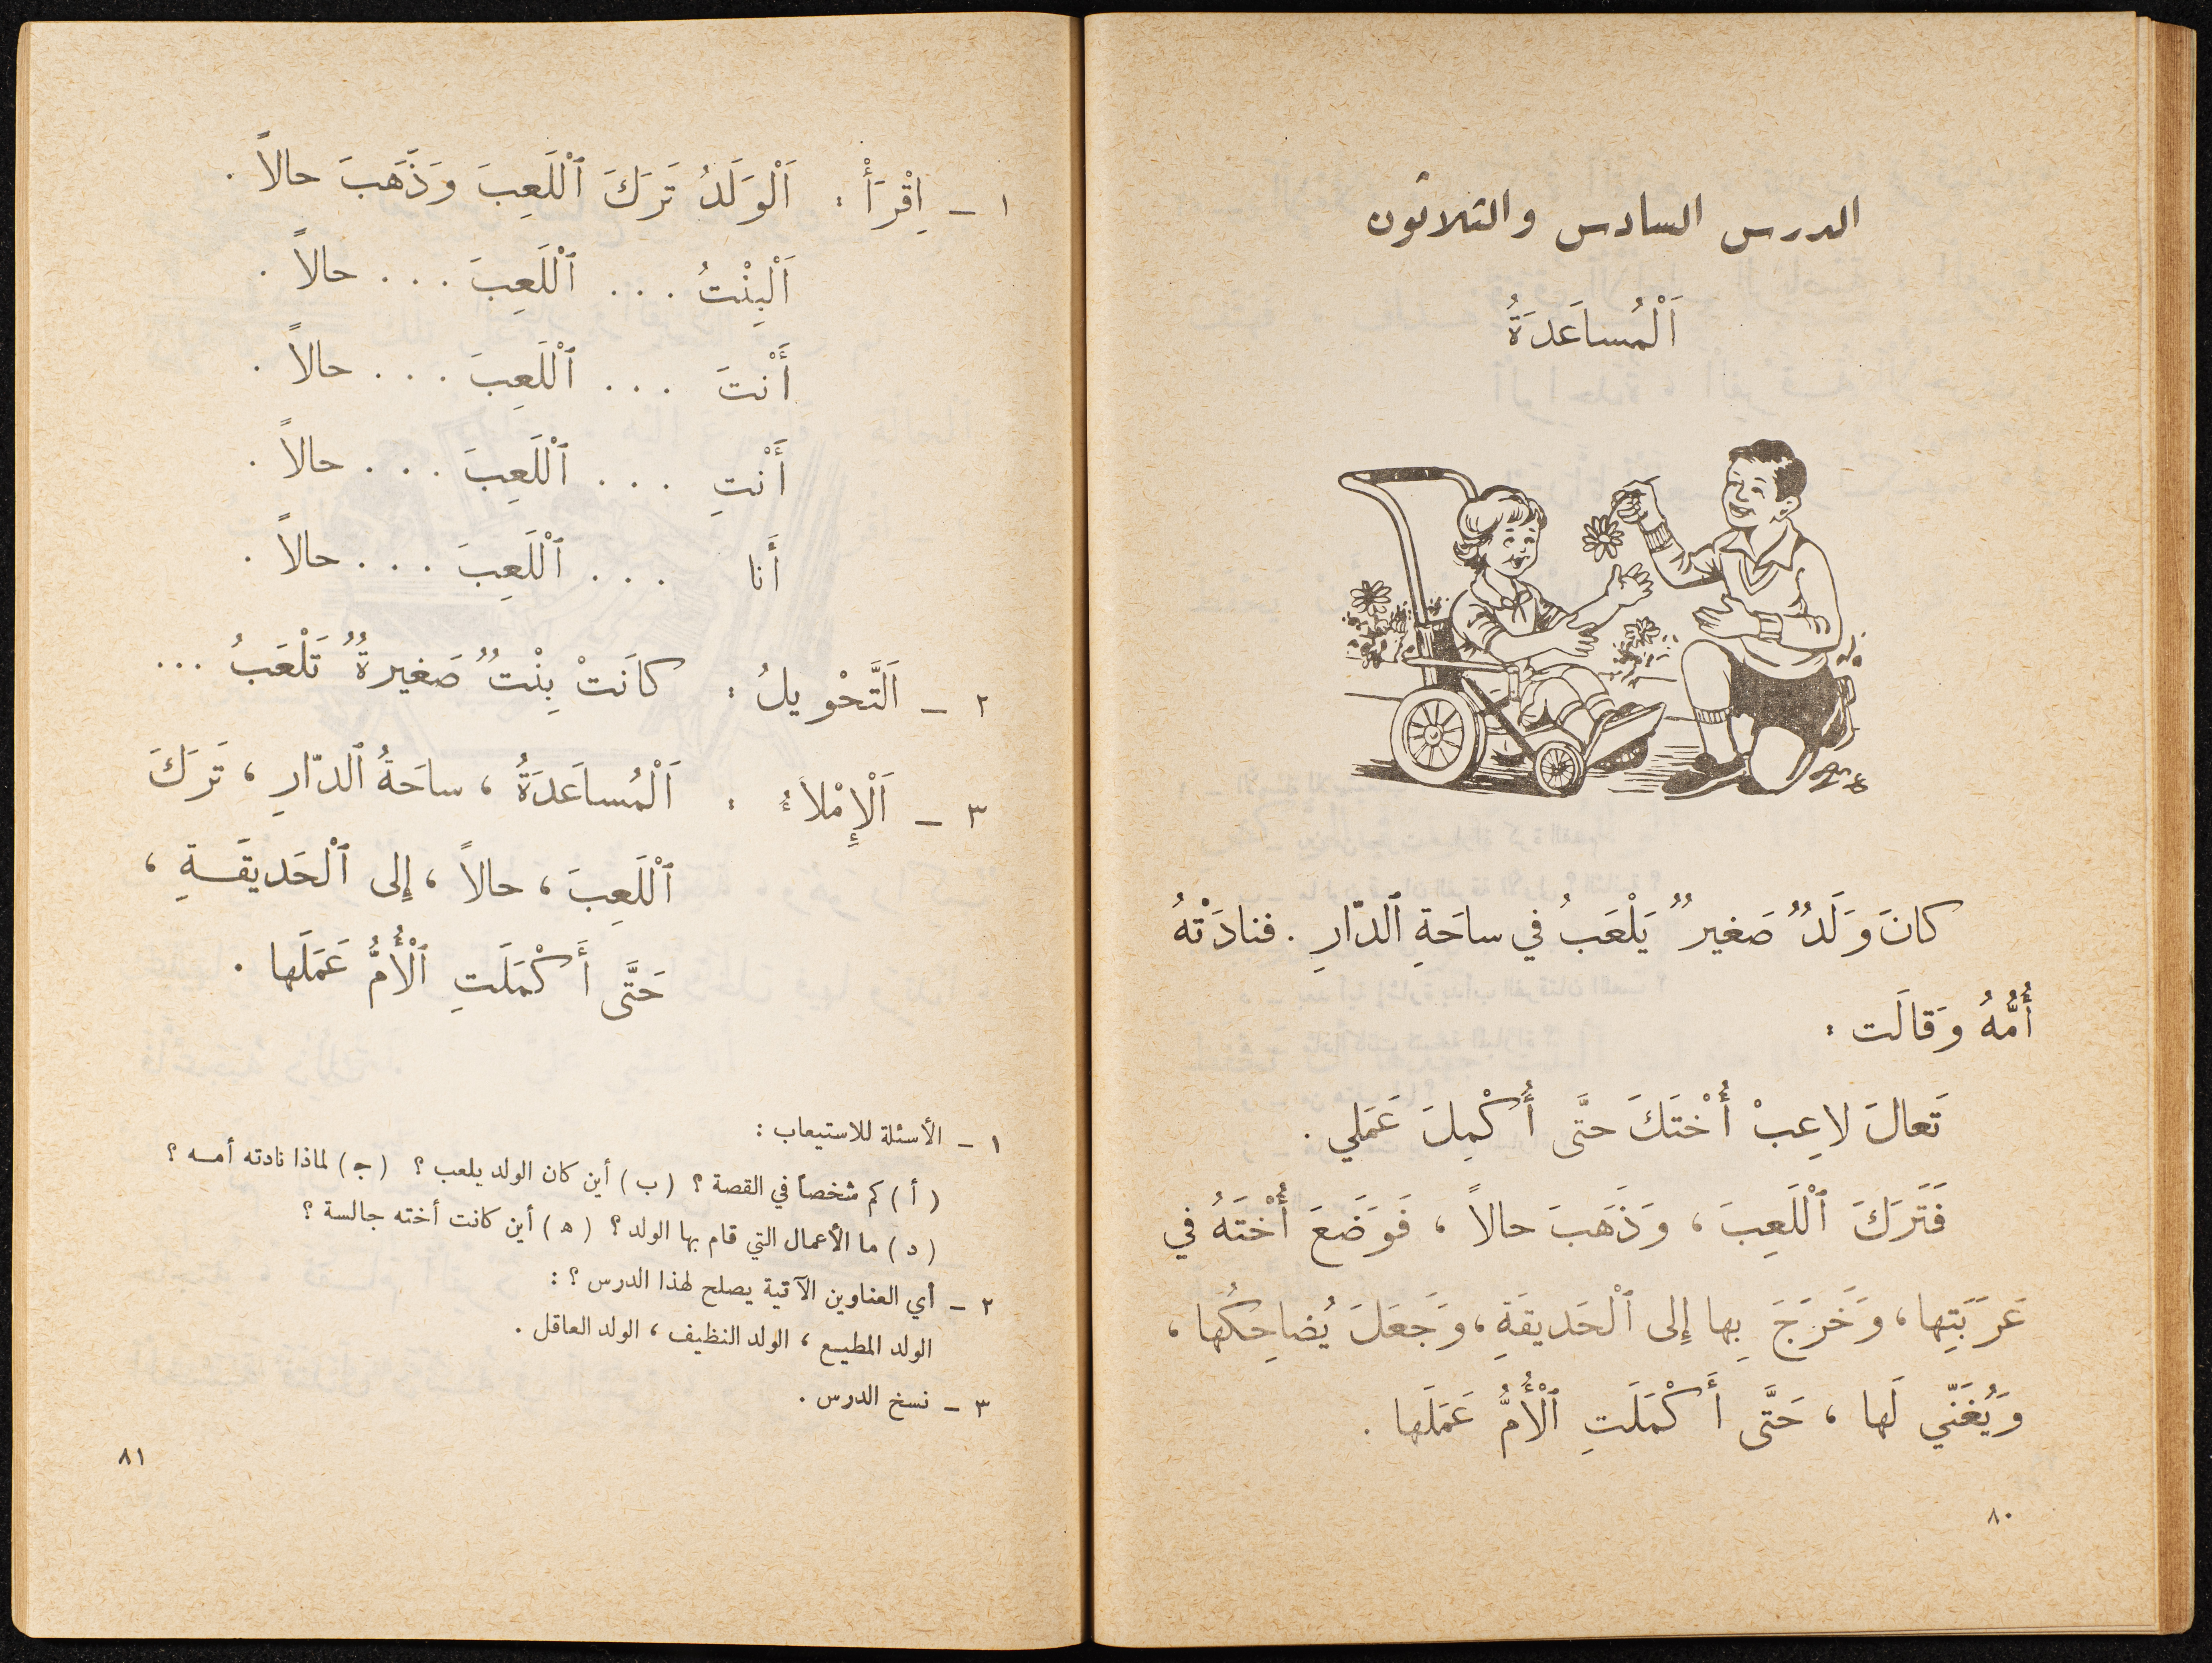 الدرس السادس والثلاثون
اَلْمُساعَدَةُ
كانَ وَلَدٌ صَغيرٌ يَلْعَبُ في ساحَةِ ٱلدّارِ . فنادَتْهُ
أُمُّهُ وَقالَت :
تَعالَ لاعِبْ أُخْتَكَ حتَّى أُكْمِلَ عَمَلي .
فَتَرَكَ ٱللَّعِبَ ، وَذَهَبَ حالاً ، فَوَضَعَ أُخْتَهُ في
عَرَبَتِها ، وَخَرَجَ بِها إلى ٱلْحَديقَةِ ، وَجَعَلَ يُضاحِكُها ،
وَيُغَنّي لَها ، حَتَّى أَكْمَلَتِ ٱلْأُمُّ عَمَلَها .
٨٠
١ – اِقْرَأْ : اَلْوَلَدُ تَرَكَ ٱلْلَعِبَ وَذَهَبَ حالاً .
اَلْبِنْتُ . . . ٱلْلَعِبَ . . . حالاً .
أَنْتَ . . . ٱلْلَعِبَ . . . حالاً .
أَنْتِ . . . ٱلْلَعِبَ . . . حالاً .
أَنا . . . ٱلْلَعِبَ . . . حالاً .
٢ – اَلتَّحْويلُ : كانَتْ بِنْتٌ صَغيرةٌ تَلْعَبُ ...
٣ – اَلْإِمْلاءُ : اَلْمُساعَدَةُ ، ساحَةُ ٱلدّارِ ، تَرَكَ
ٱلْلَعِبَ ، حالاً ، إلى ٱلْحَديقَـةِ ،
حَتَّى أَكْمَلَتِ ٱلْأُمُّ عَمَلَها .
١ – الأسئلة للاستيعاب :
( أ ) كم شخصاً في القصة ؟ ( ب ) أين كان الولد يلعب ؟ ( ج ) لماذا نادته أمـه ؟
( د ) ما الأعمال التي قام بها الولد ؟ ( ه ) أين كانت أخته جالسة ؟
٢ – أي العناوين الآتية يصلح لهذا الدرس ؟ :
الولد المطيـع ، الولد النظيف ، الولد العاقل .
٣ – نسخ الدرس .
٨١